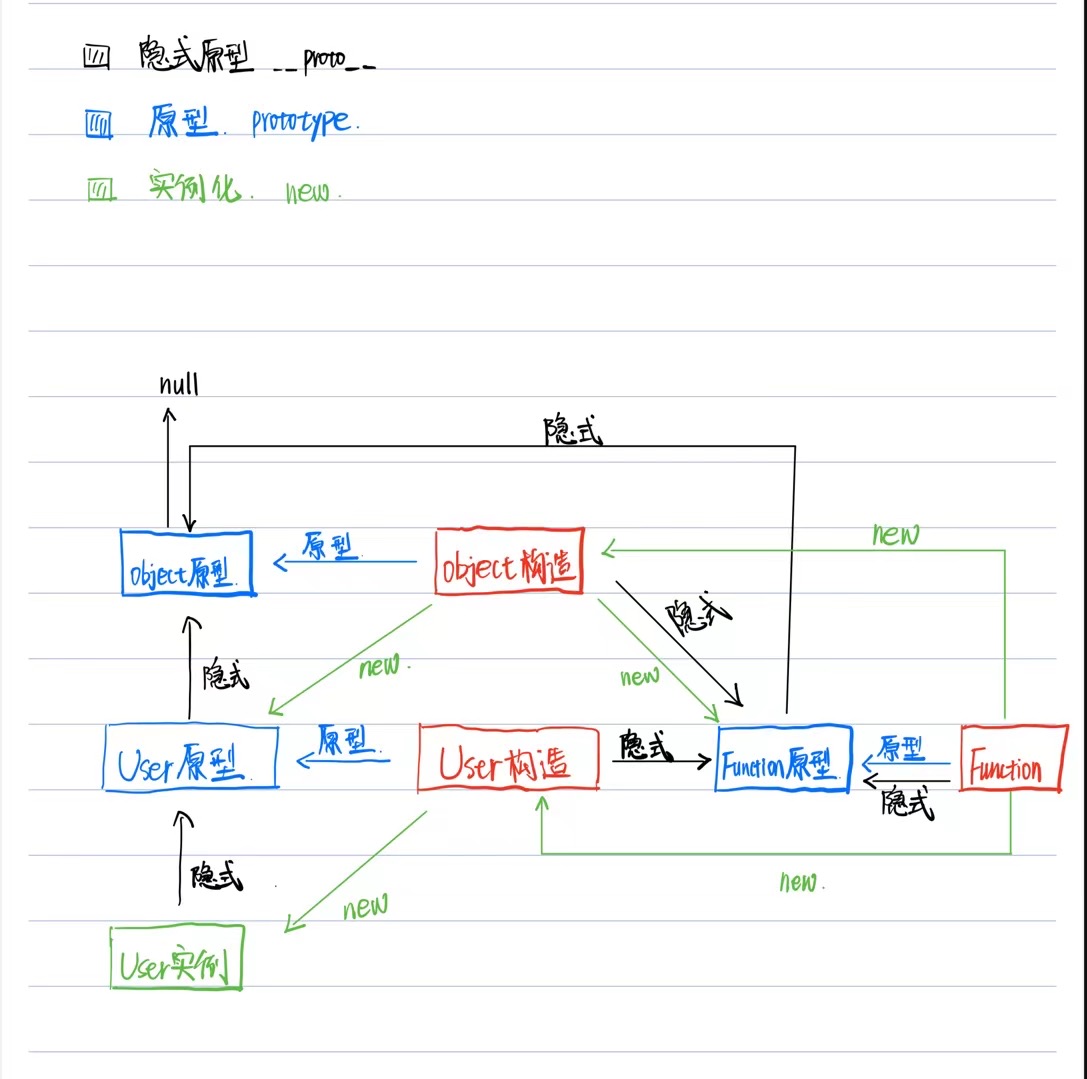 隐式原型 __proto__
原型. prototype.
实例化. new.
null
隐式
new
原型.
object原型.
object构造
隐式
new.
new
隐式
原型.
隐式
原型
User原型.
User构造
Function原型.
Function
隐式
隐式
new.
new
User实例